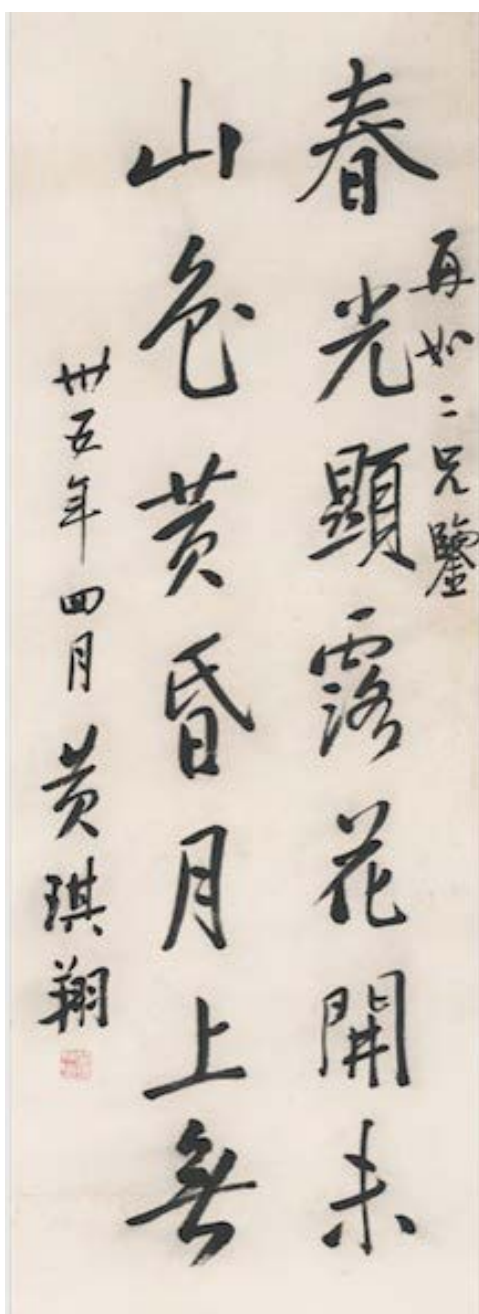 再如二兄鑒
春光顯露花開未
山色黄昏月上無
卅五年四月黄琪翔